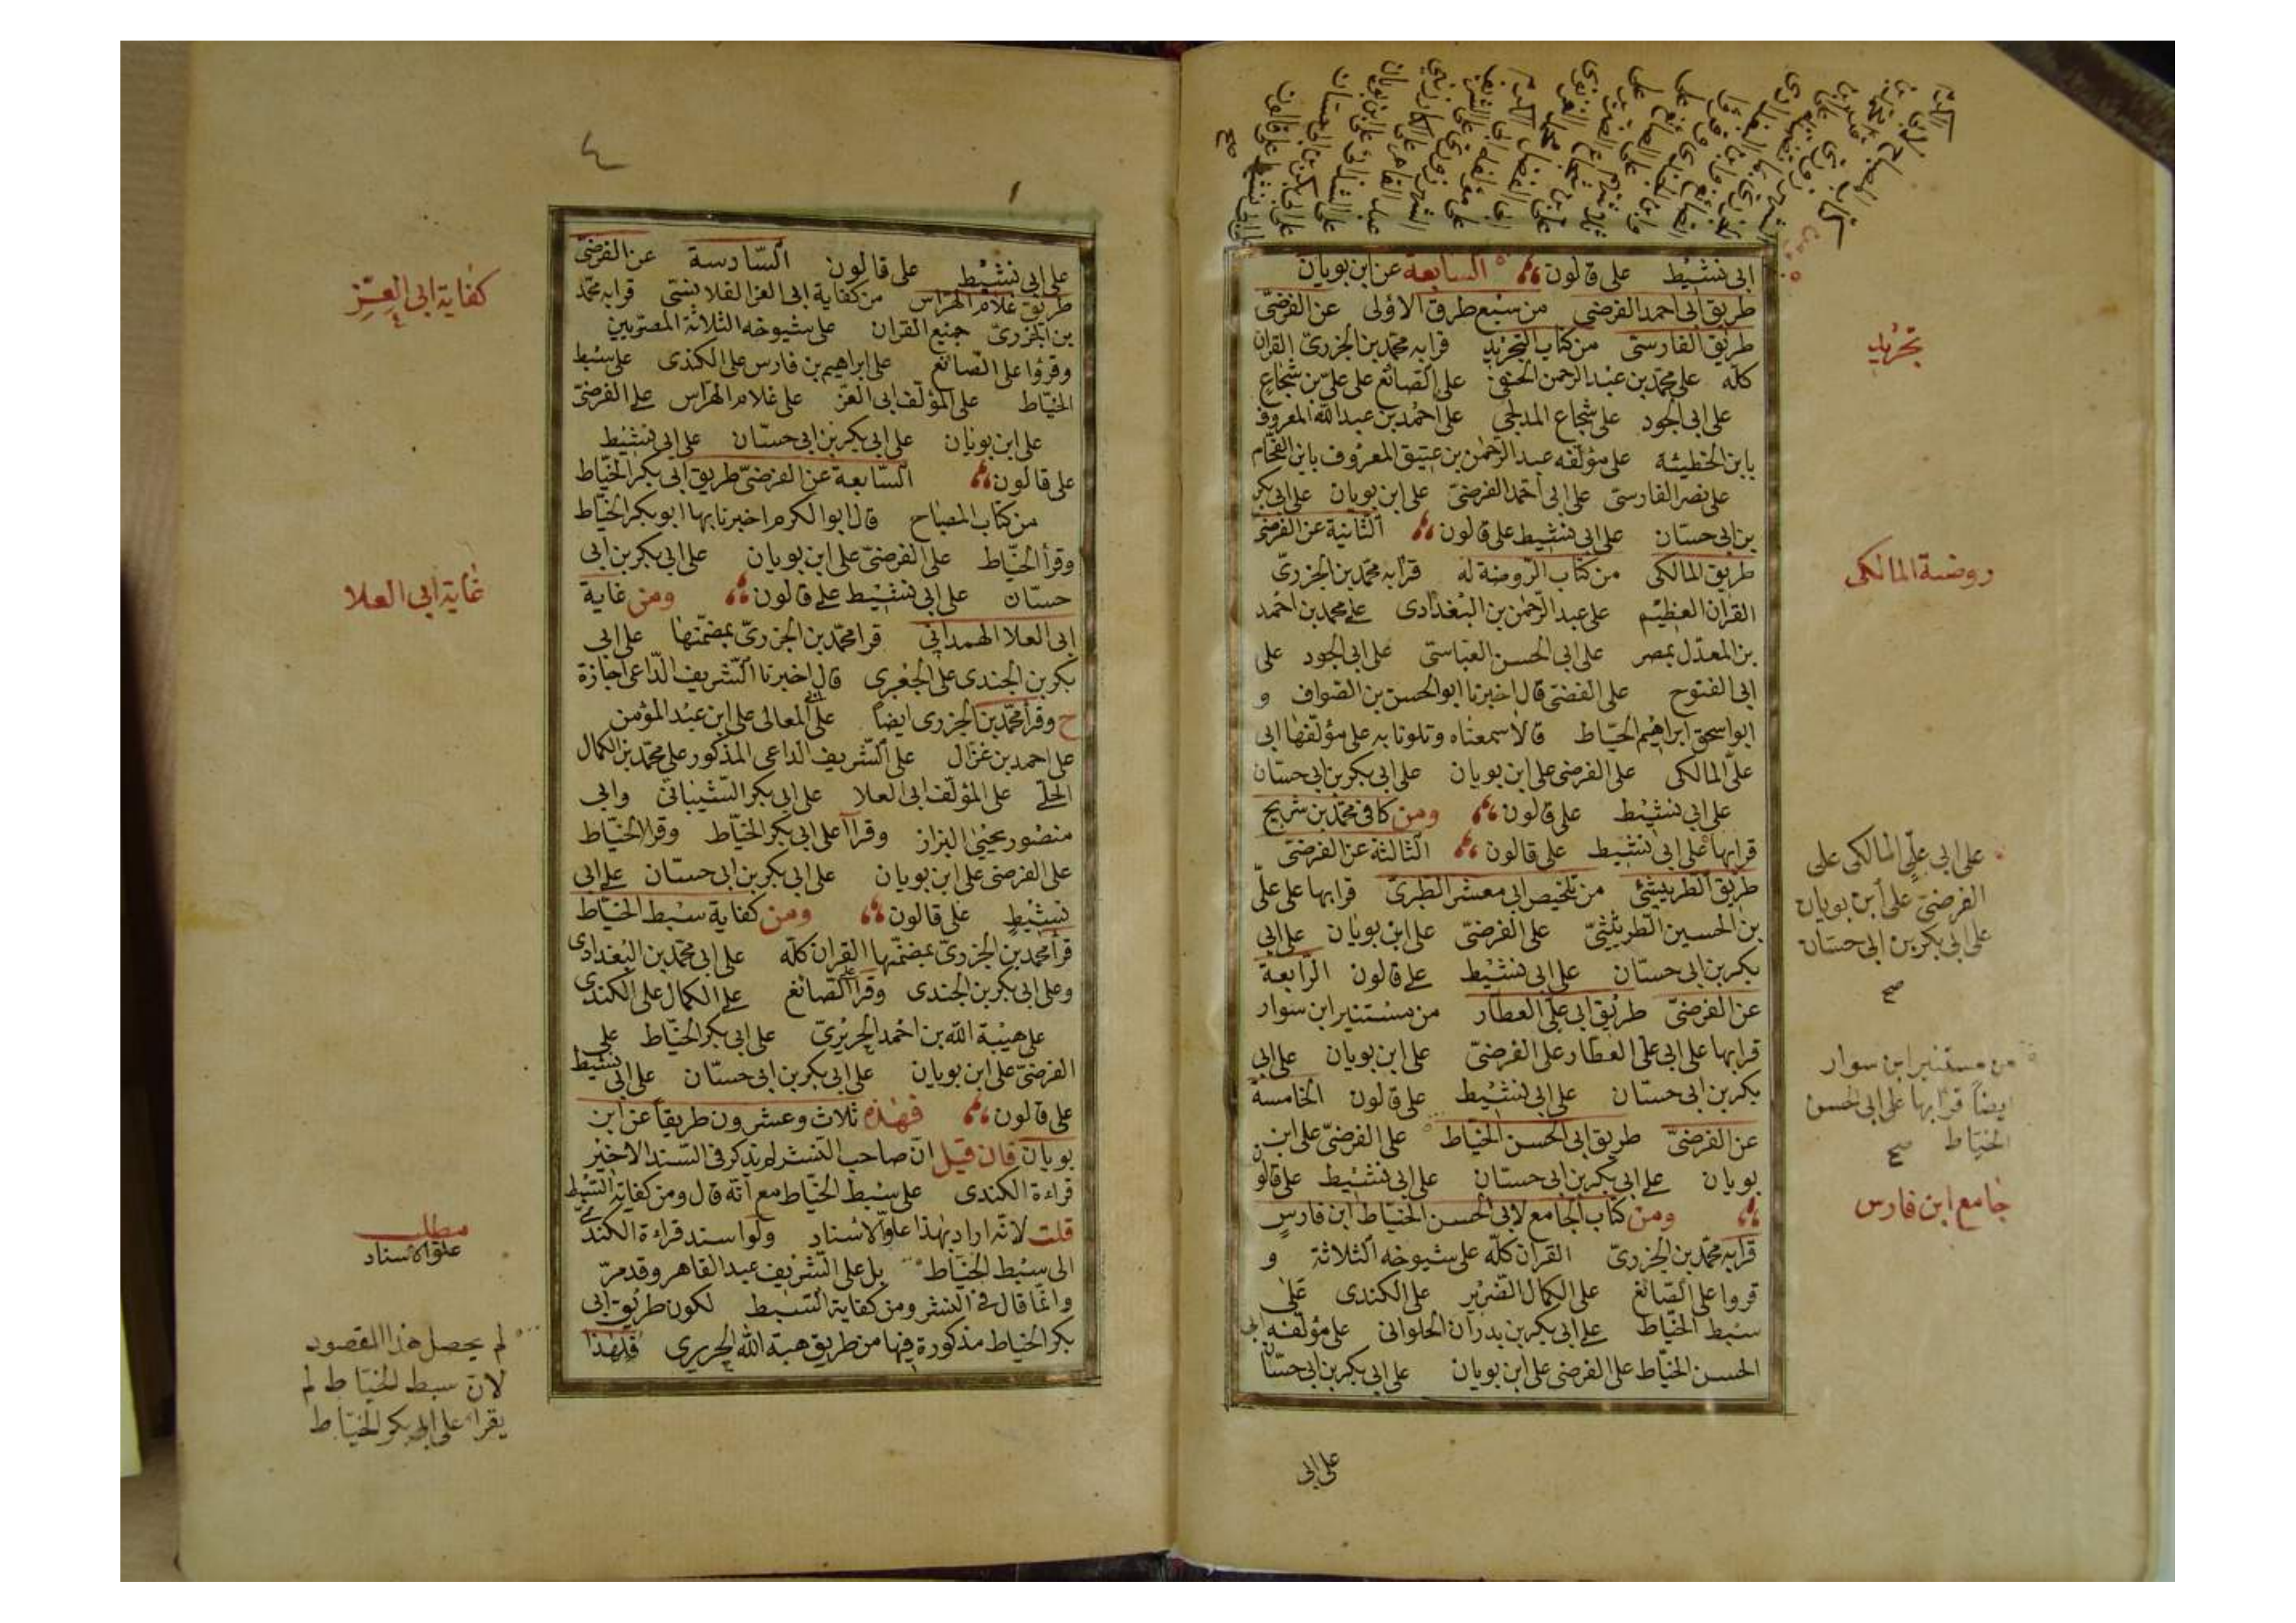 ابى نشيط على قالون السابعة عن ابن بويان
طريق ابى احمد الفرضى من سبع طرق الاولى عن الفرضىّ
طريق الفارسىّ من كتاب التجريد قرا به محمد بن الجزرىّ القران
كله على محمد بن عبد الرحمن الحنفى على الصائغ على علىّ بن شجاع
على ابى الجود على شجاع المدلجى على احمد بن عبد الله المعروف
بابن الحطيئة على مؤلفه عبد الرحمن بن عتيق المعروف بابن الفحّام
على نصر الفارسىّ على ابى احمد الفرضىّ على ابن بويان على ابى بكر
بن ابى حسان على ابى نشيط على قالون الثانية عن الفرضىّ
طريق المالكى من كتاب الروضة له قرا به محمد بن الجزرىّ
القران العظيم على عبد الرحمن بن البغدادى على محمد بن احمد
بن المعدّل بمصر على ابى الحسن العباسىّ على ابى الجود على
ابى الفتوح على الفضى قال اخبرنا ابو الحسن بن الصواف و
ابو اسحق ابراهيم الخيّاط قالا سمعناه وتلونا به على مؤلفها ابى
علىّ المالكى على الفرضى على ابن بويان على ابى بكر بن ابى حسّان
على ابى نشيط على قالون ومن كافى محمد بن شريح
قرا بها على ابى نشيط على قالون الثالثة عن الفرضى
طريق الطريثيثى من تلخيص ابى معشر الطبرىّ قرا بها على علىّ
بن الحسين الطريثيثىّ على الفرضىّ على ابن بويان على ابى
بكر بن ابى حسّان على ابى نشيط على قالون الرّابعة
عن الفرضىّ طريق ابى على العطار من مستنير ابن سوار
قرا بها على ابى على العطار على الفرضىّ على ابن بويان على ابى
بكر بن ابى حسّان على ابى نشيط على قالون الخامسة
عن الفرضىّ طريق ابى الحسن الخيّاط على الفرضىّ على ابن
بويان على ابى بكر بن ابى حسّان على ابى نشيط على قالون
ومن كتاب الجامع لابى الحسن الخيّاط ابن فارس
قرا به محمّد بن الجزرىّ القران كلّه على شيوخه الثلاثة و
قروا على الصّائغ على الكمال الضرير على الكندى على
سبط الخيّاط على ابى بكر بن بدران الحلوانى على مؤلفه ابى
الحسن الخيّاط على الفرضى على ابن بويان على ابى بكر بن ابى حسّان
على ابى
تجريد
روضة المالكى
على ابى علىّ المالكى على
الفرضىّ على ابن بويان
على ابى بكر بن ابى حسّان
صح
من مستنير ابن سوار
ايضاً قرا بها على ابى الحسن
الخياط صح
جامع ابن فارس
٤
على ابى نشيط على قالون السّادسة عن الفرضىّ
طريق غلام الهرّاس من كفاية ابى العز القلانسى قرا به محمّد
بن الجزرىّ جميع القران على شيوخه الثلاثة المصرّيين
وقرؤا على الصّائغ على ابراهيم بن فارس على الكندى على سبط
الخيّاط على المؤلف ابى العزّ على غلام الهرّاس على الفرضىّ
على ابن بويان على ابى بكر بن ابى حسّان على ابى نشيط
على قالون السّابعة عن الفرضىّ طريق ابى بكر الخيّاط
من كتاب المصباح قال ابو الكرم اخبرنا بها ابو بكر الخيّاط
وقرأ الخيّاط على الفرضىّ على ابن بويان على ابى بكر بن ابى
حسّان على ابى نشيط على قالون ومن غاية
ابى العلا الهمدانى قرا محمّد بن الجزرىّ بمضمّنها على ابى
بكر بن الجندى على الجعبرى قال اخبرنا الشريف الدّاعى اجازة
ح وقرأ محمّد بن الجزرى ايضاً على ابى المعالى على ابن عبد المؤمن
على احمد بن غزال على الشريف الداعى المذكور على محمّد بن الكمال
الحلّى على المؤلف ابى العلا على ابى بكر الشيبانى وابى
منصور يحيى البزاز وقرآ على ابى بكر الخيّاط وقرا الخيّاط
على الفرضى على ابن بويان على ابى بكر بن ابى حسّان على ابى
نشيط على قالون ومن كفاية سبط الخيّاط
قرأ محمد بن الجزرىّ بمضمّنها القران كلّه على ابى محمّد بن البغدادى
وعلى ابى بكر بن الجندى وقرآ على الصّائغ على الكمال على الكندى
على هيبة الله بن احمد الحريرىّ على ابى بكر الخيّاط على
الفرضىّ على ابن بويان على ابى بكر بن ابى حسّان على ابى نشيط
على قالون فهذه ثلاث وعشرون طريقاً عن ابن
بويان فان قيل انّ صاحب النشر لم يذكر فى السّند الاخير
قراءة الكندى على سبط الخيّاط مع انّه قال ومن كفاية السّبط
قلت لانّه اراد بهذا علوّ الاسناد ولو اسند قراءة الكندى
الى سبط الخيّاط بل على الشريف عبد القاهر وقد مرّ
وانّما قال فى النشر ومن كفاية السّبط لكون طريق ابى
بكر الخياط مذكورة فيها من طريق هبة الله الحريرى فلهذا
كفاية ابى العزّ
غاية ابى العلا
مطلب
علوّ الاسناد
لم يحصل هذا المقصود
لان سبط الخيّاط لم
يقرا على ابى بكر الخيّاط